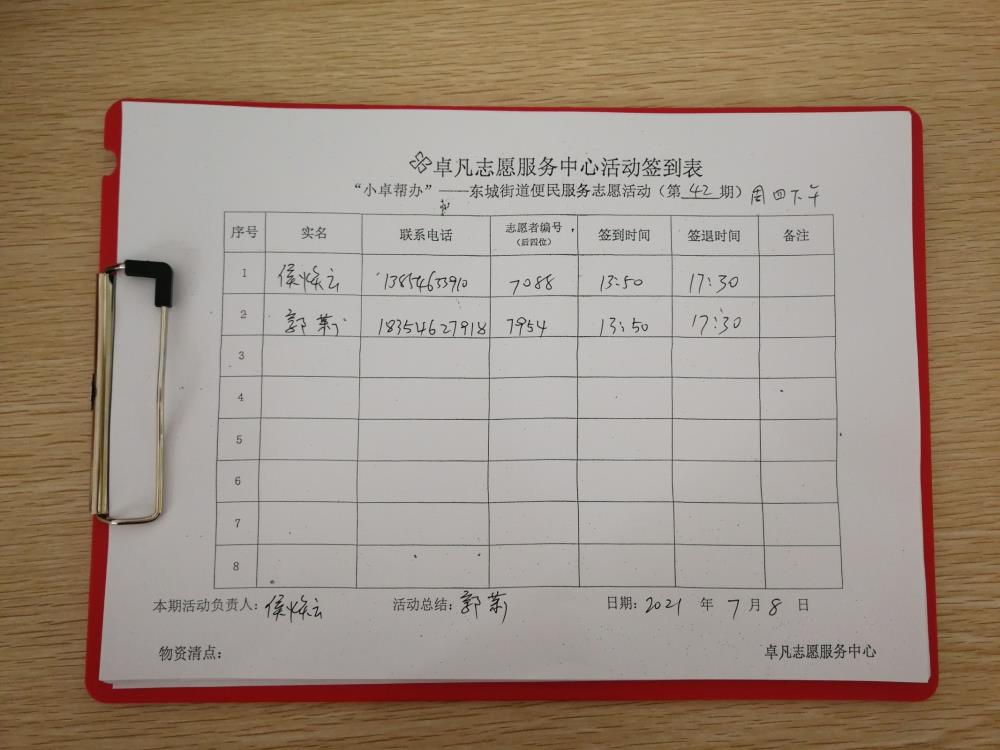 卓凡志愿服务中心活动签到表
“小卓帮办”——东城街道便民服务志愿活动（第 42 期）周四下午
序号 实名 联系电话 志愿者编号（后四位） 签到时间 签退时间 备注
1 侯焕云 13854633910 7088 13:50 17:30
2 郭 18354627918 7954 13:50 17:30
3
4
5
6
7
8
本期活动负责人：侯焕云 活动总结：郭 日期：2021 年 7 月 8 日
物资清点： 卓凡志愿服务中心